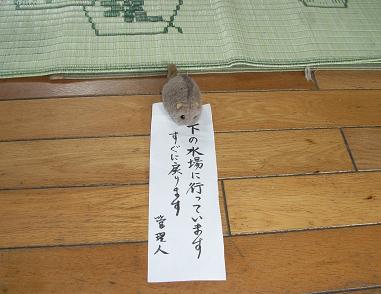 下の水場に行っています
すぐに戻ります
管理人